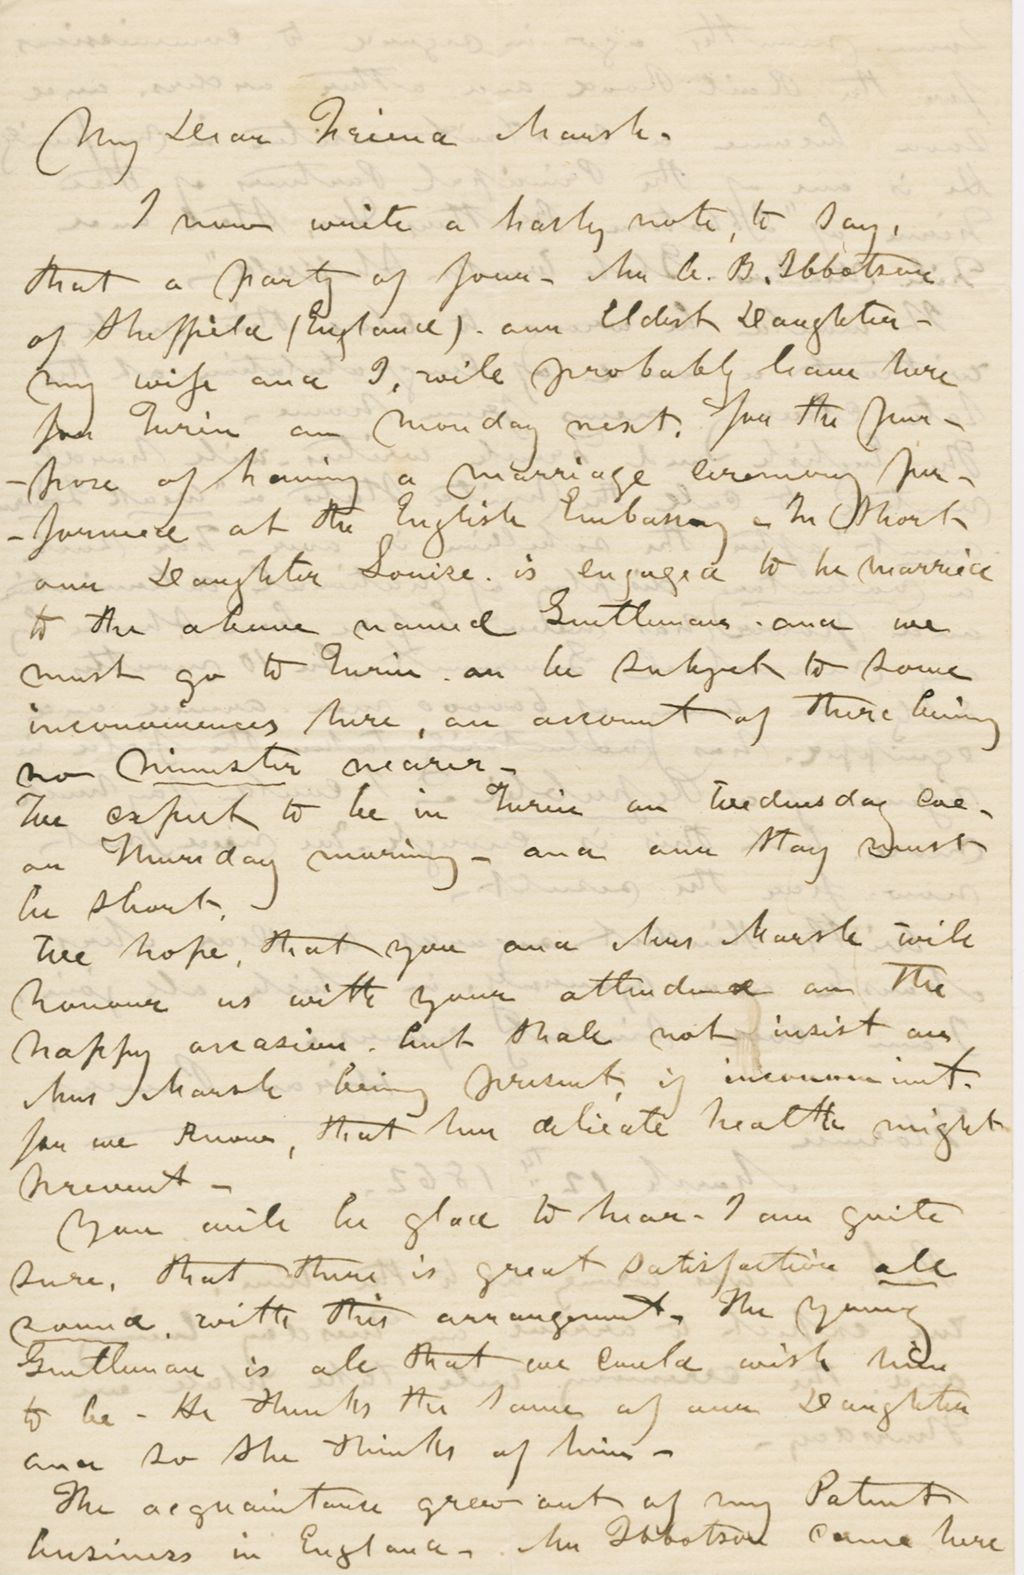 My Dear Friend Marsh.
I now write a hasty note, to say,
that a party of four - Mr A. B. Ibbotson
of Sheffield (England). our Eldest Daughter -
my wife and I, will probably leave here
for Turin on Monday next. for the pur-
-pose of having a marriage ceremony per-
-formed at the English Embassy - In Short
our Daughter Louise. is engaged to be married
to the above named Gentleman. and we
must go to Turin. or be subject to some
inconveniences here, on account of there being
no Minister nearer -
We expect to be in Turin on Wednesday eve-
or Thursday morning - and our Stay must
be Short.
We hope, that you and Mrs Marsh will
honour us with your attendance on the
happy occasion. but shall not insist on
Mrs Marsh being present, if inconvenient.
for we know, that her delicate health might
prevent -
You will be glad to hear - I am quite
sure, that there is great satisfaction all
round, with this arrangement. The young
Gentleman is all that we could wish him
to be - He thinks the same of our Daughter
and so She thinks of him -
The acquaintance grew out of my Patent
business in England - Mr Ibbotson came here